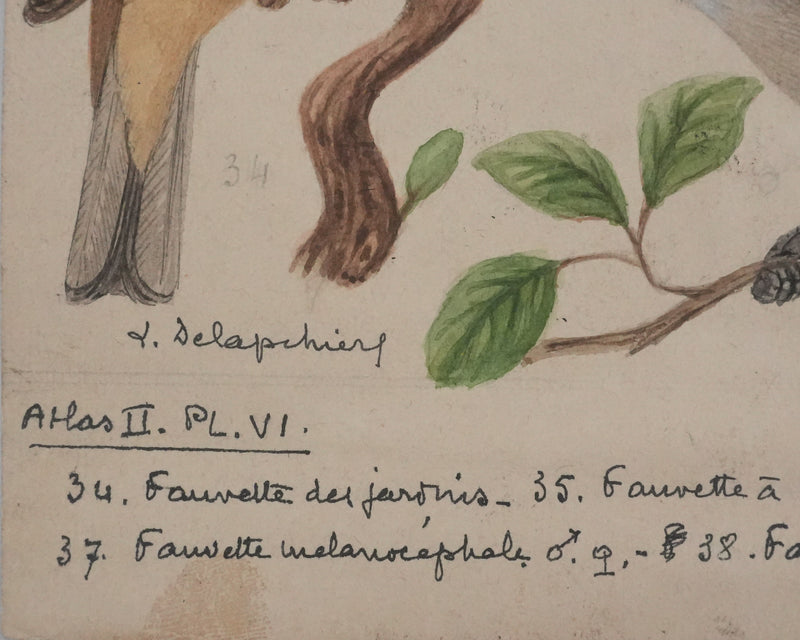 34
L. Delapchier
Atlas II. PL. VI.
34. Fauvette des jardins_ 35. Fauvette à
37. Fauvette mélanocéphale ♂. ♀.- 38. Fa